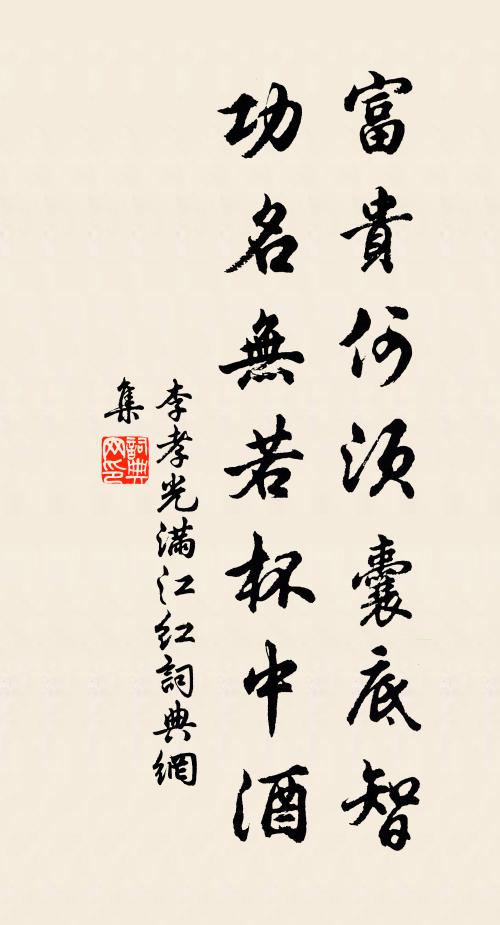 富貴何須囊底智
功名無若杯中酒
李孝光滿江紅詞典網
集
詞典网印